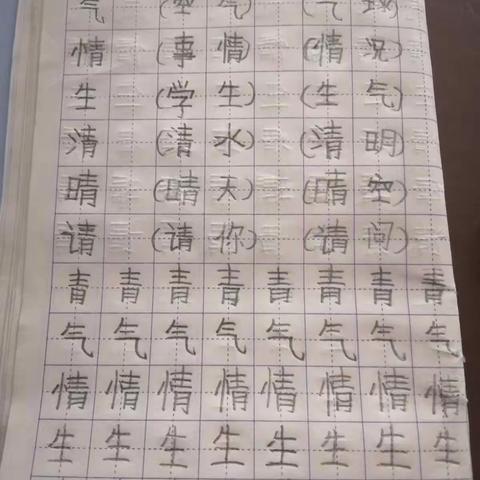 气 (空 气) (气 球)
情 (事 情) (情 况)
生 (学 生) (生 气)
清 (清 水) (清 明)
晴 (晴 天) (晴 空)
请 (请 你) (请 问)
青 青 青 青 青 青 青 青
气 气 气 气 气 气 气 气
情 情 情 情 情 情 情 情
生 生 生 生 生 生 生 生